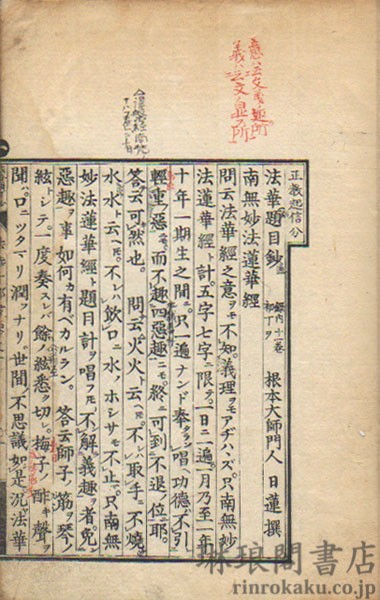 正教起信分
法華題目鈔 根本大師門人 日蓮 撰
南無妙法蓮華經
問云法華經之意ヲモ不知義理ヲモアヂハヽズ。只南無妙
法蓮華經ト計。五字七字ニ限テ一日ニ一遍一月乃至一年
十年一期生之間ニ。只一遍ナンド奉唱功德不引
輕重ノ惡ニ。而不趣四惡趣ニモ。終ニ可到不退ノ位耶。
答云可然也 問云火火ト云ヘトモ不レハ取手ニ不燒
水水ト云ヘトモ不レハ飲口ニ水ノホシサモ不止。只南無
妙法蓮華經ト題目計ヲ唱フトモ不解義趣者免ン
惡趣ヲ事如何カ有ベカルラン。答云師子ノ筋ヲ琴ノ
絃トシテ一度奏スレバ餘ノ絃悉ク切レ。梅子ノ酢キ聲ヲ
聞ハ口ニツタマリ潤フナリ。世間ノ不思議如是況法華
琳琅閣書店
rinrokaku.co.jp